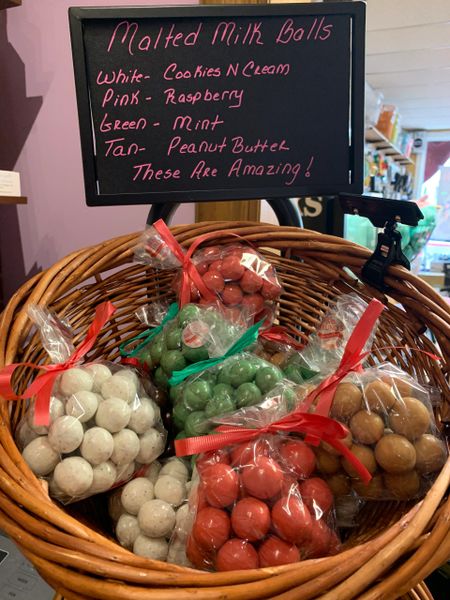 Malted Milk Balls
White- Cookies N Cream
Pink- Raspberry
Green- Mint
Tan- Peanut Butter
These Are Amazing!